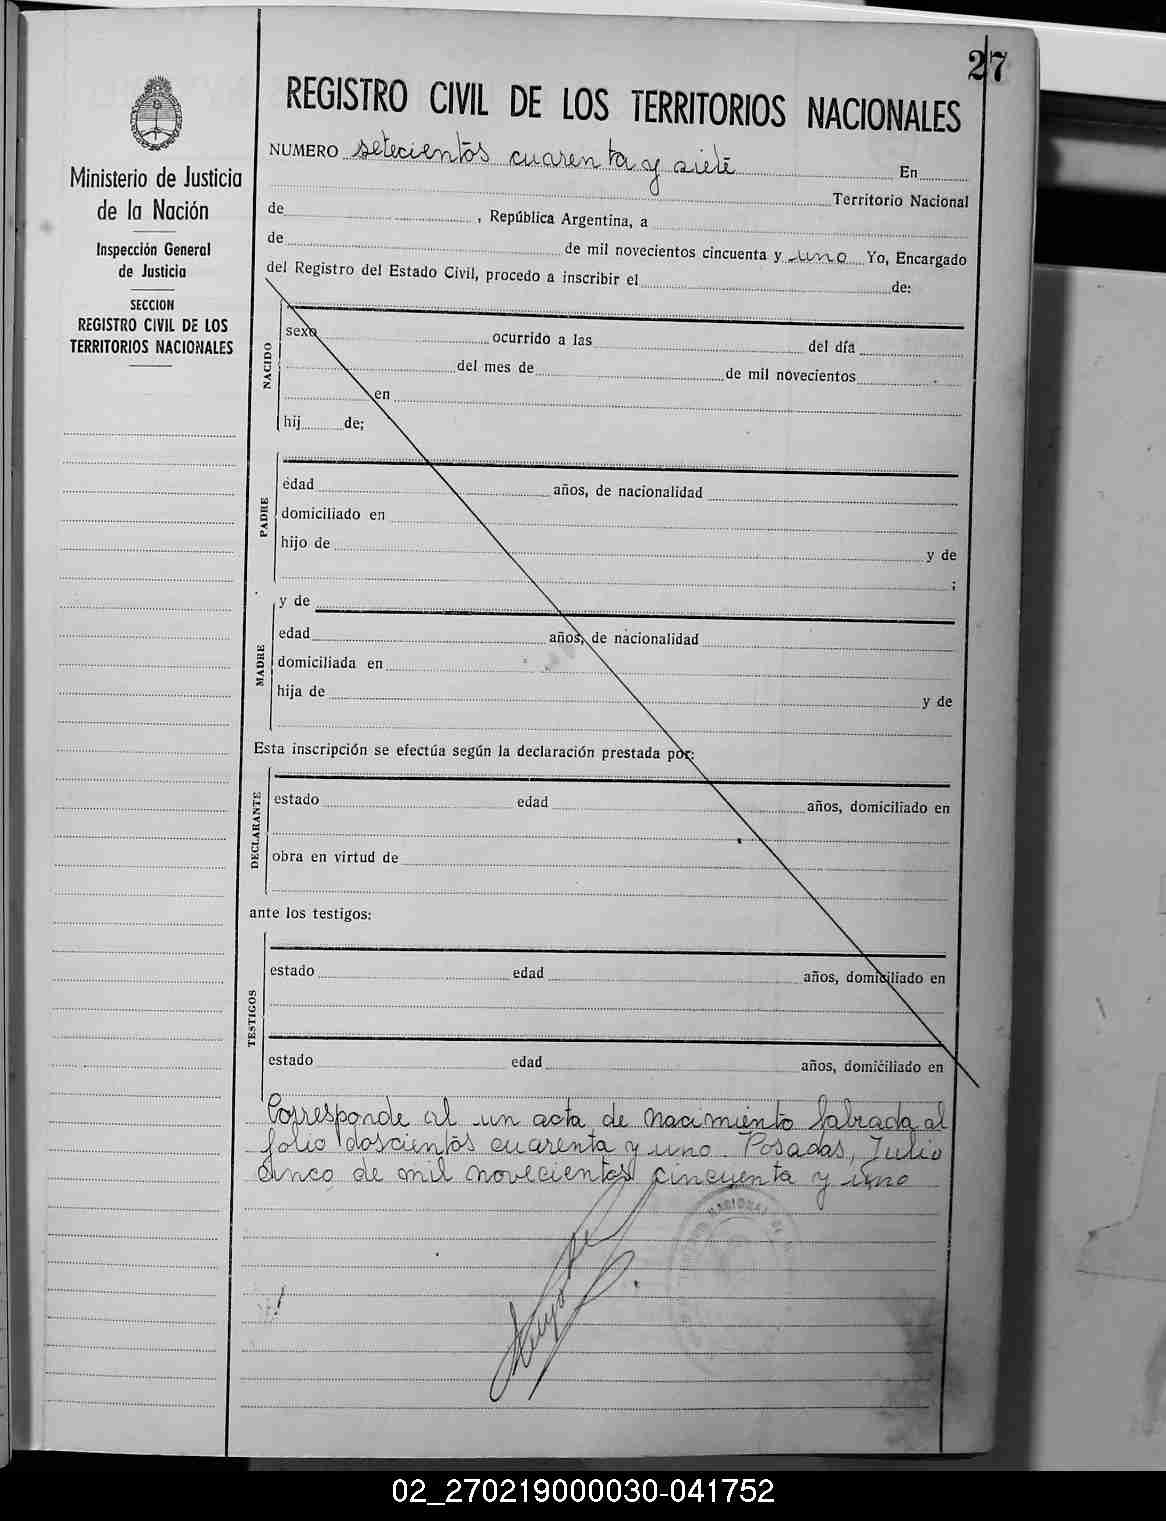 27
REGISTRO CIVIL DE LOS TERRITORIOS NACIONALES
Ministerio de Justicia
de la Nación
Inspección General
de Justicia
SECCION
REGISTRO CIVIL DE LOS
TERRITORIOS NACIONALES
NUMERO setecientos cuarenta y siete En
Territorio Nacional
de , República Argentina, a
de de mil novecientos cincuenta y uno Yo, Encargado
del Registro del Estado Civil, procedo a inscribir el de:
NACIDO
sexo ocurrido a las del día
del mes de de mil novecientos
en
hij de;
PADRE
edad años, de nacionalidad
domiciliado en
hijo de y de
;
MADRE
y de
edad años, de nacionalidad
domiciliada en
hija de y de
Esta inscripción se efectúa según la declaración prestada por:
DECLARANTE
estado edad años, domiciliado en
obra en virtud de
ante los testigos:
TESTIGOS
estado edad años, domiciliado en
estado edad años, domiciliado en
Corresponde al un acta de Nacimiento labrada al
folio doscientos cuarenta y uno. Posadas, Julio
cinco de mil novecientos cincuenta y uno
NACIONAL
02_270219000030-041752